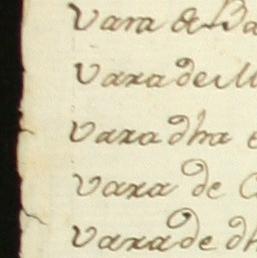 Vara de Ba
Vara de M
Vara dha
Vara de C
Vara de dh